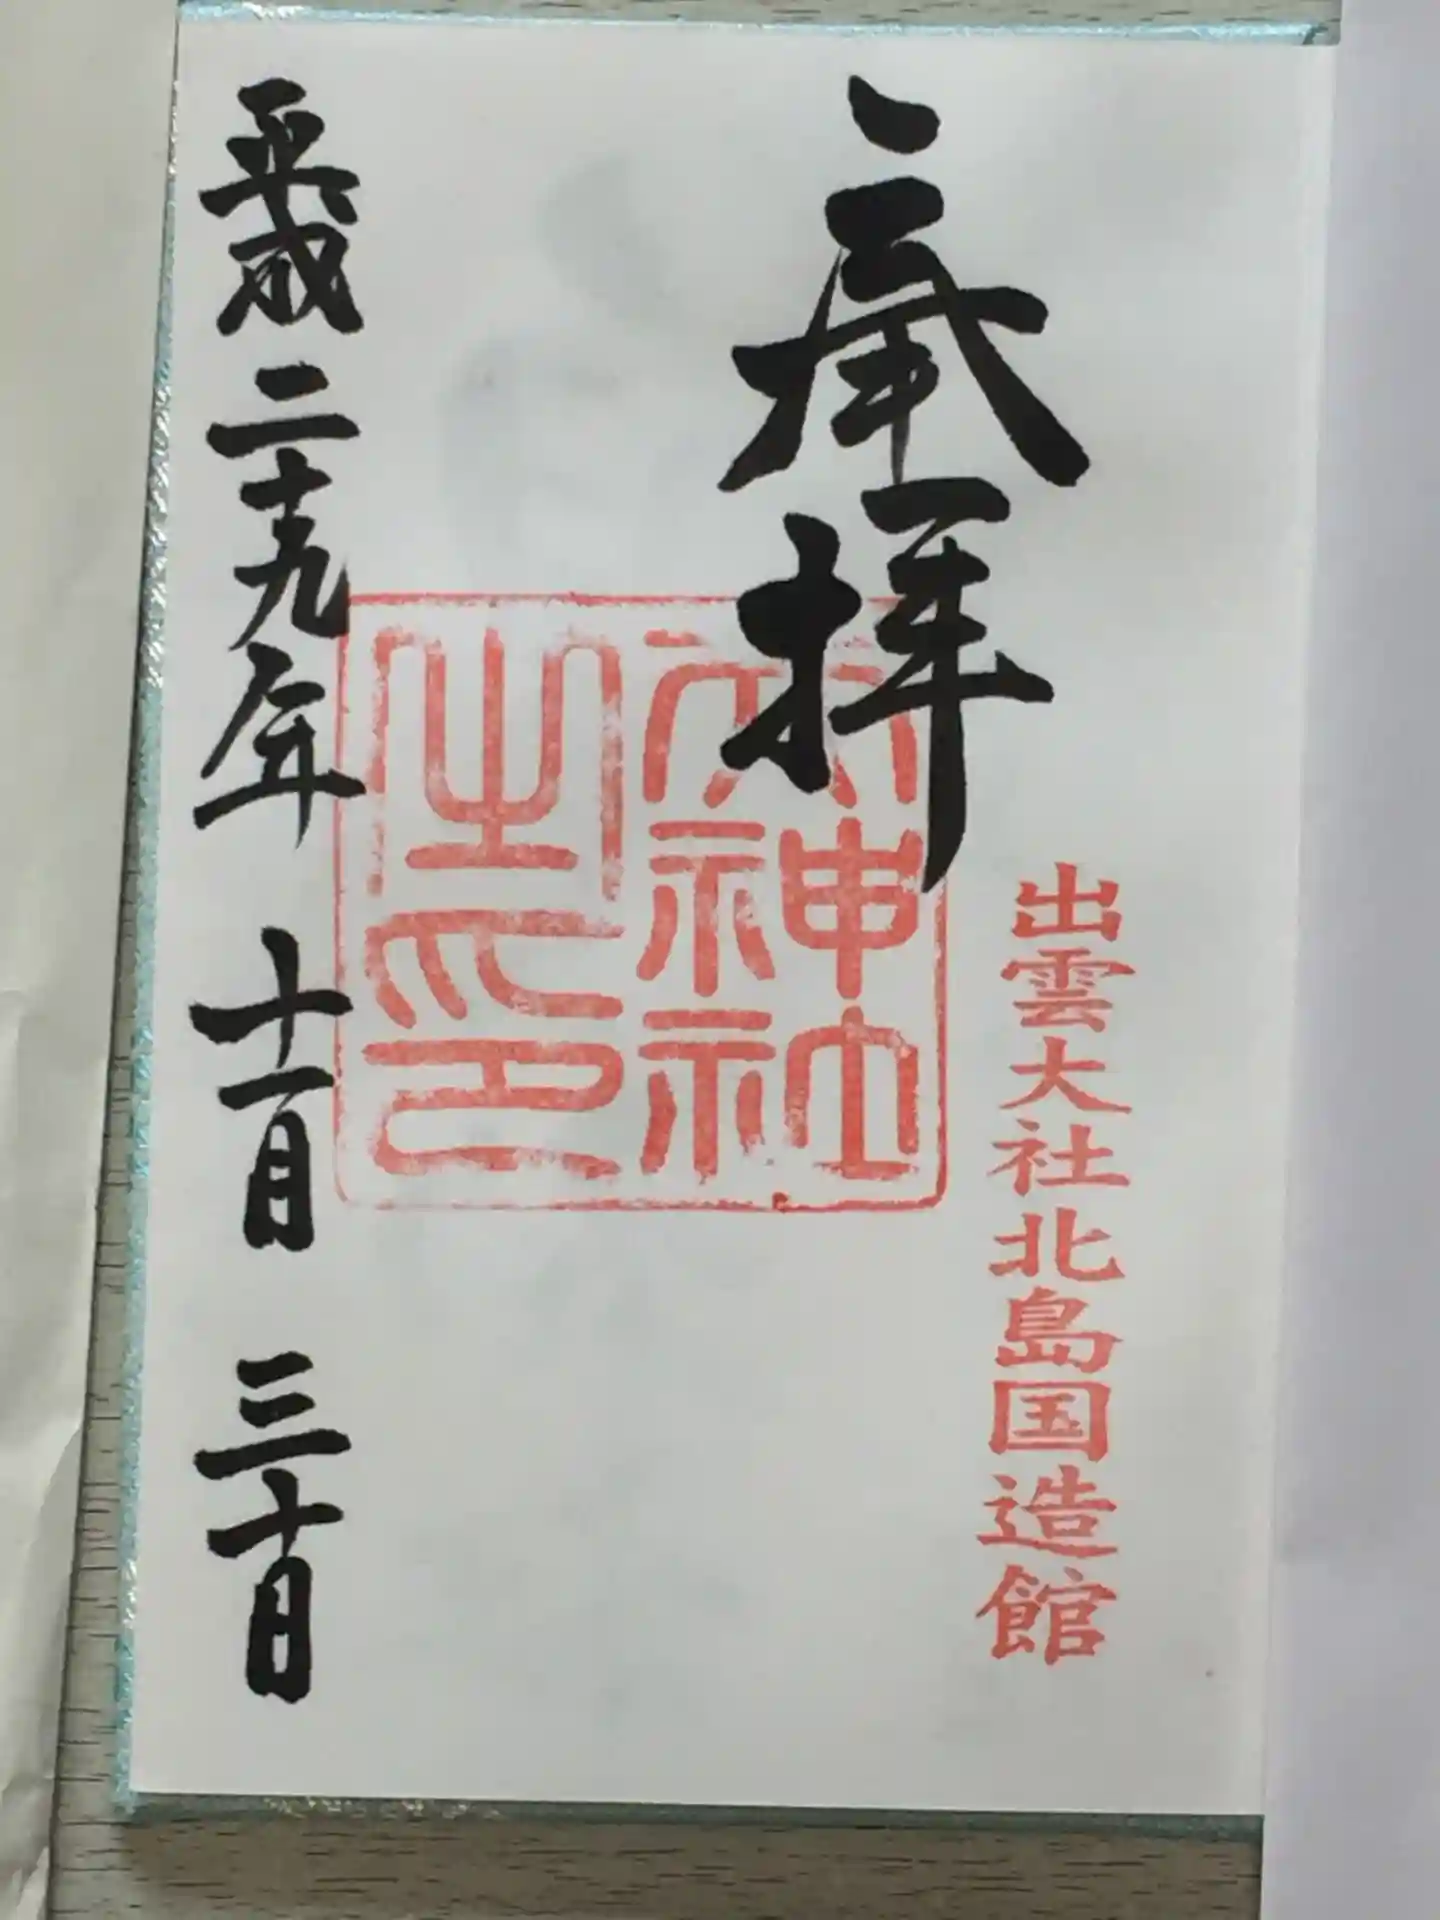 奉拝
出雲大社北島国造館
天神社
之印
平成二十九年十一月三十日